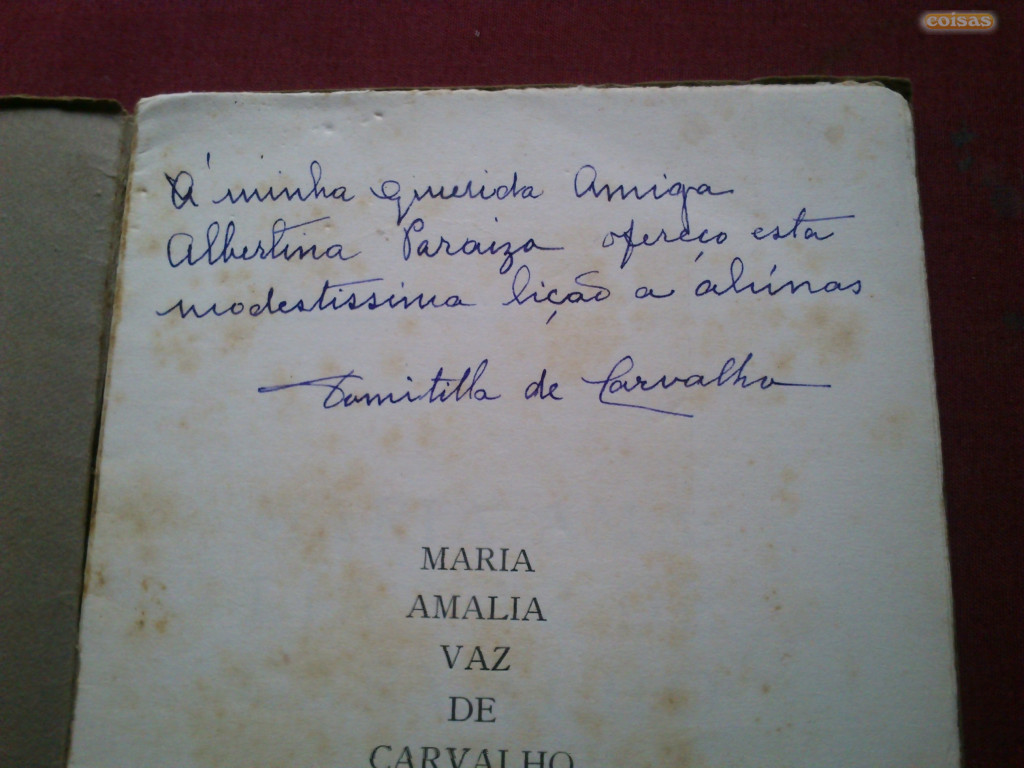 coisas
Á minha querida Amiga
Albertina Paraizo ofereço esta
modestissima lição a álúnas
Domitilla de Carvalho
MARIA
AMALIA
VAZ
DE
CARVALHO